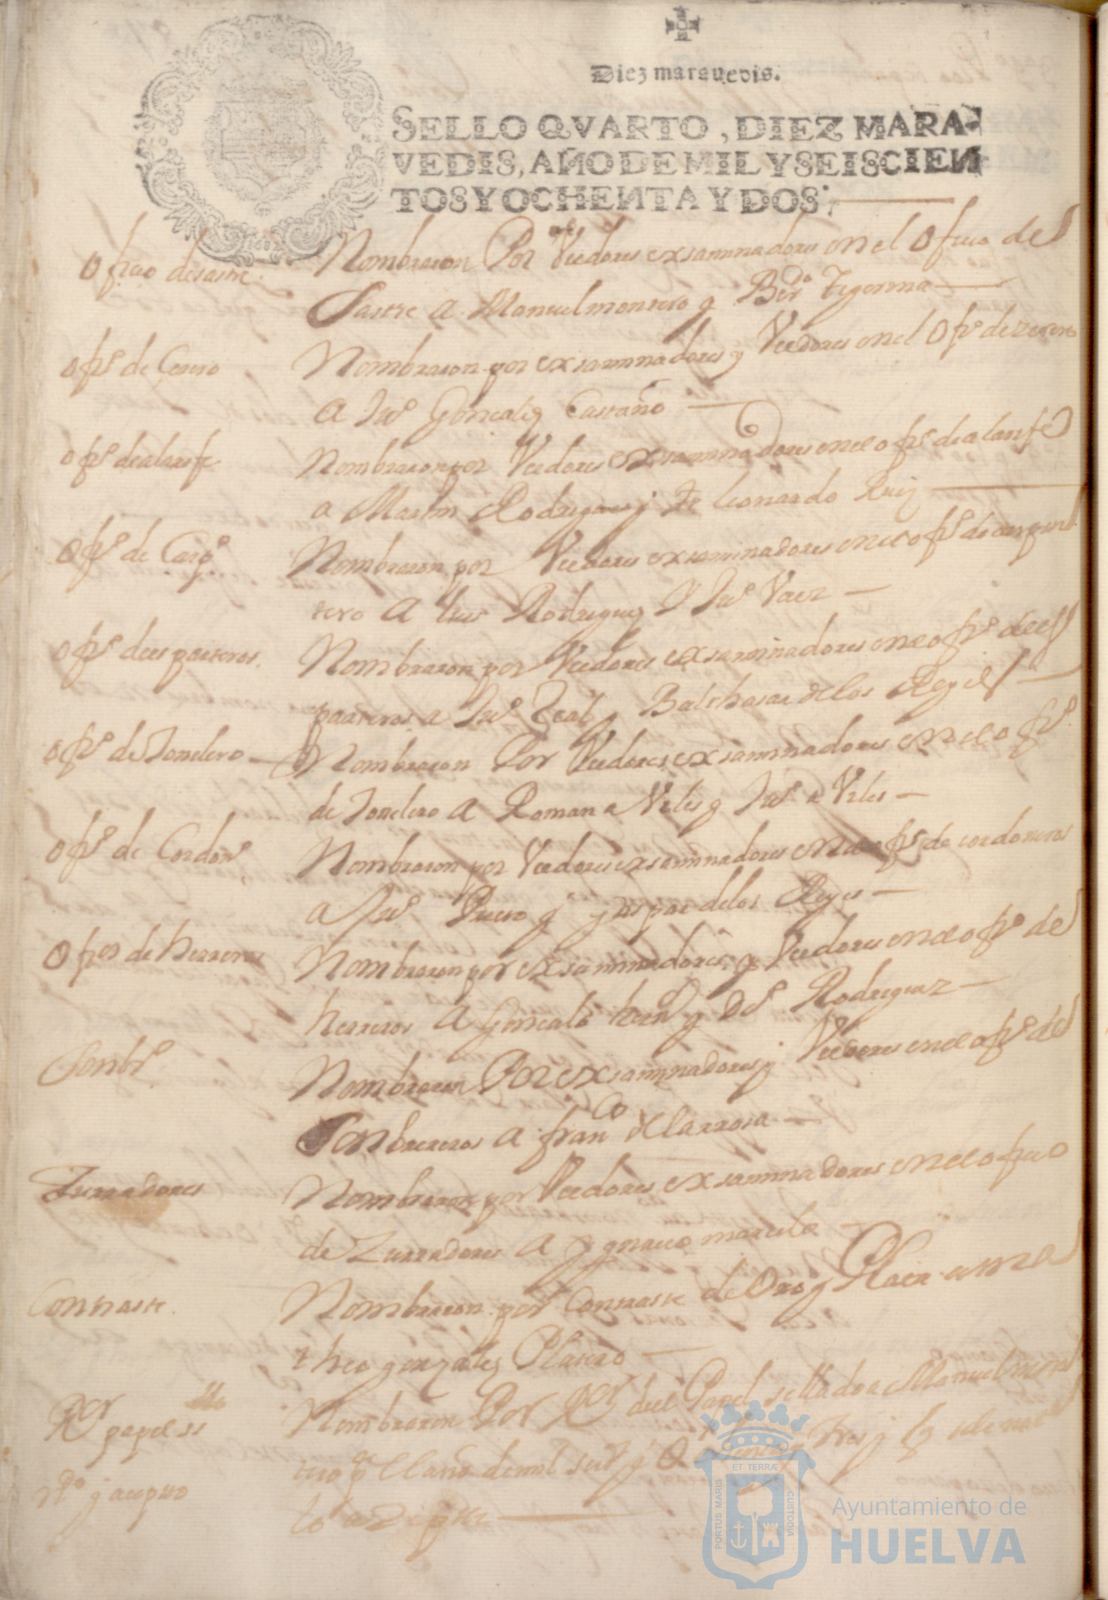 Diez marauedis.
SELLO QVARTO, DIEZ MARA-
VEDIS, AÑO DE MIL Y SEISCIEN
TOS Y OCHENTA Y DOS.
Ofiçio de sastre.
Nombraron Por Veedores exsaminadores en el Ofiçio de
Sastre a Manuel montero y Ber.do
ofi.º de Cerero
Nombraron por exsaminadores y Veedores en el Ofi.º de zerero
A Ju.º Gonçales Castaño
ofi.º de alarife
Nombraron por Veedores exsaminadores en el ofi.º de alarife
a Martin Rodrigues y de leonardo Ruiz
Ofi.º de Carp.º
Nombraron por Veedores exsaminadores en el ofi.º de carpin
tero A luis Rodrigues Y Ju.º Vaez
ofi.º de esparteros.
Nombraron por Veedores exsaminadores en el ofi.º de es
parteros a Ju.º Leal y Balthasar de los Reyes
ofi.º de Tonelero
Nombraron Por Veedores exsaminadores en el ofi.º
de Tonelero A Roman a Veles y Ju.º a Veles
ofi.º de Cordon.º
Nombraron por Veedores exsaminadores en el ofi.º de cordoneros
a Ju.º y gaspar de los Reyes
Ofi.º de herreros
Nombraron por exsaminadores y Veedores en el ofi.º de
herreros A Gonçalo hern y D.º Rodriguez
Sonbr.º
Nombraron Por exsaminadores y Veedores en el ofi.º de
Sonbrereros a fran.co de larrosa
Zurradores
Nombraron por Veedores exsaminadores en el ofiçio
de Zurradores A ygnacio marcelo
Contraste.
Nombraron por Contraste de Oro y Plata a ma
theo gonzales Platero
R.or papel ss.do
Nombraron Por R.or del Papel sellado a Manuel mon
tero p.a el año de mil seis.os y
PORTUS MARIS
ET TERRÆ
CUSTODIA
Ayuntamiento de
HUELVA